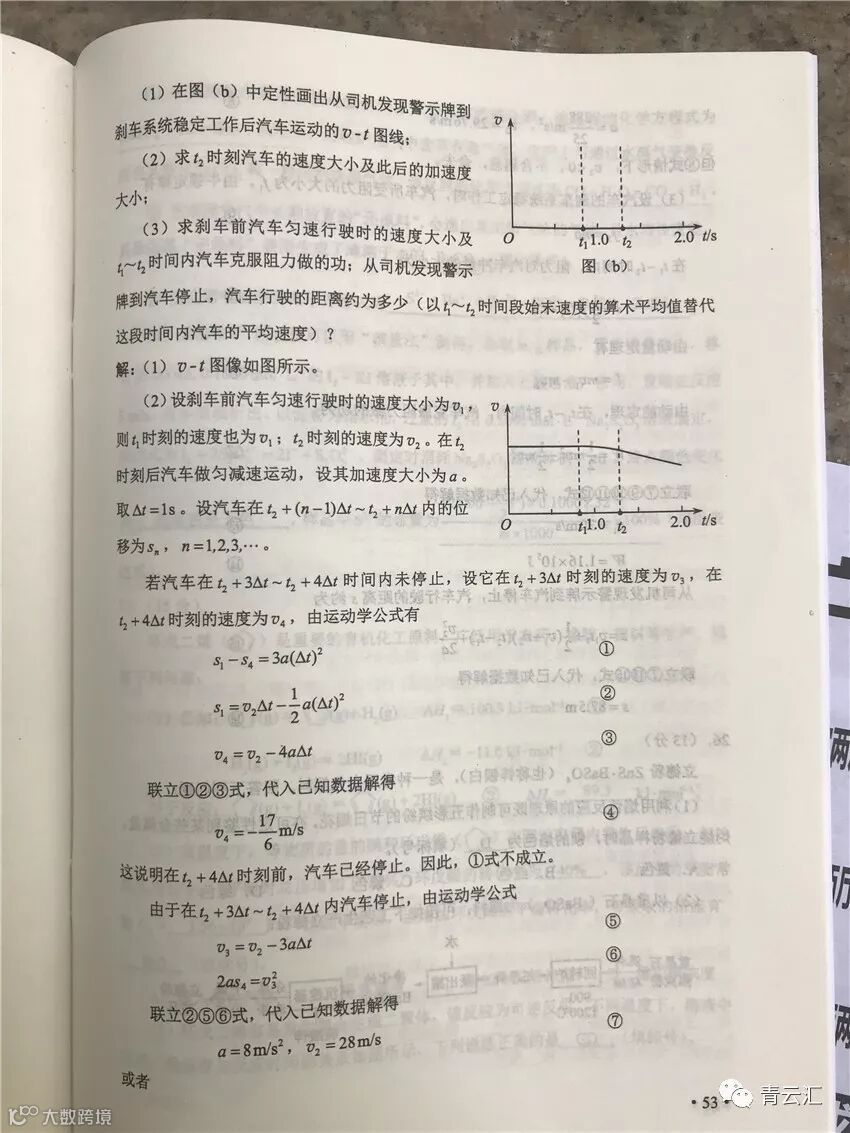 （1）在图（b）中定性画出从司机发现警示牌到
刹车系统稳定工作后汽车运动的v-t图线；
（2）求t₂时刻汽车的速度大小及此后的加速度
大小；
（3）求刹车前汽车匀速行驶时的速度大小及
t₁～t₂时间内汽车克服阻力做的功；从司机发现警示
牌到汽车停止，汽车行驶的距离约为多少（以t₁～t₂时间段始末速度的算术平均值替代
这段时间内汽车的平均速度）？
v
O t₁ 1.0 t₂ 2.0 t/s
图（b）
解：（1）v-t图像如图所示。
（2）设刹车前汽车匀速行驶时的速度大小为v₁，
则t₁时刻的速度也为v₁；t₂时刻的速度为v₂。在t₂
时刻后汽车做匀减速运动，设其加速度大小为a。
取Δt=1s。设汽车在t₂+(n-1)Δt～t₂+nΔt内的位
移为sₙ，n=1,2,3,…。
v
O t₁ 1.0 t₂ 2.0 t/s
若汽车在t₂+3Δt～t₂+4Δt时间内未停止，设它在t₂+3Δt时刻的速度为v₃，在
t₂+4Δt时刻的速度为v₄，由运动学公式有
s₁-s₄=3a(Δt)² ①
s₁=v₂Δt-1/2a(Δt)² ②
v₄=v₂-4aΔt ③
联立①②③式，代入已知数据解得
v₄=-17/6 m/s ④
这说明在t₂+4Δt时刻前，汽车已经停止。因此，①式不成立。
由于在t₂+3Δt～t₂+4Δt内汽车停止，由运动学公式
v₃=v₂-3aΔt ⑤
2as₄=v₃² ⑥
联立②⑤⑥式，代入已知数据解得
a=8m/s²，v₂=28m/s ⑦
或者
·53·
青云汇
大数跨境